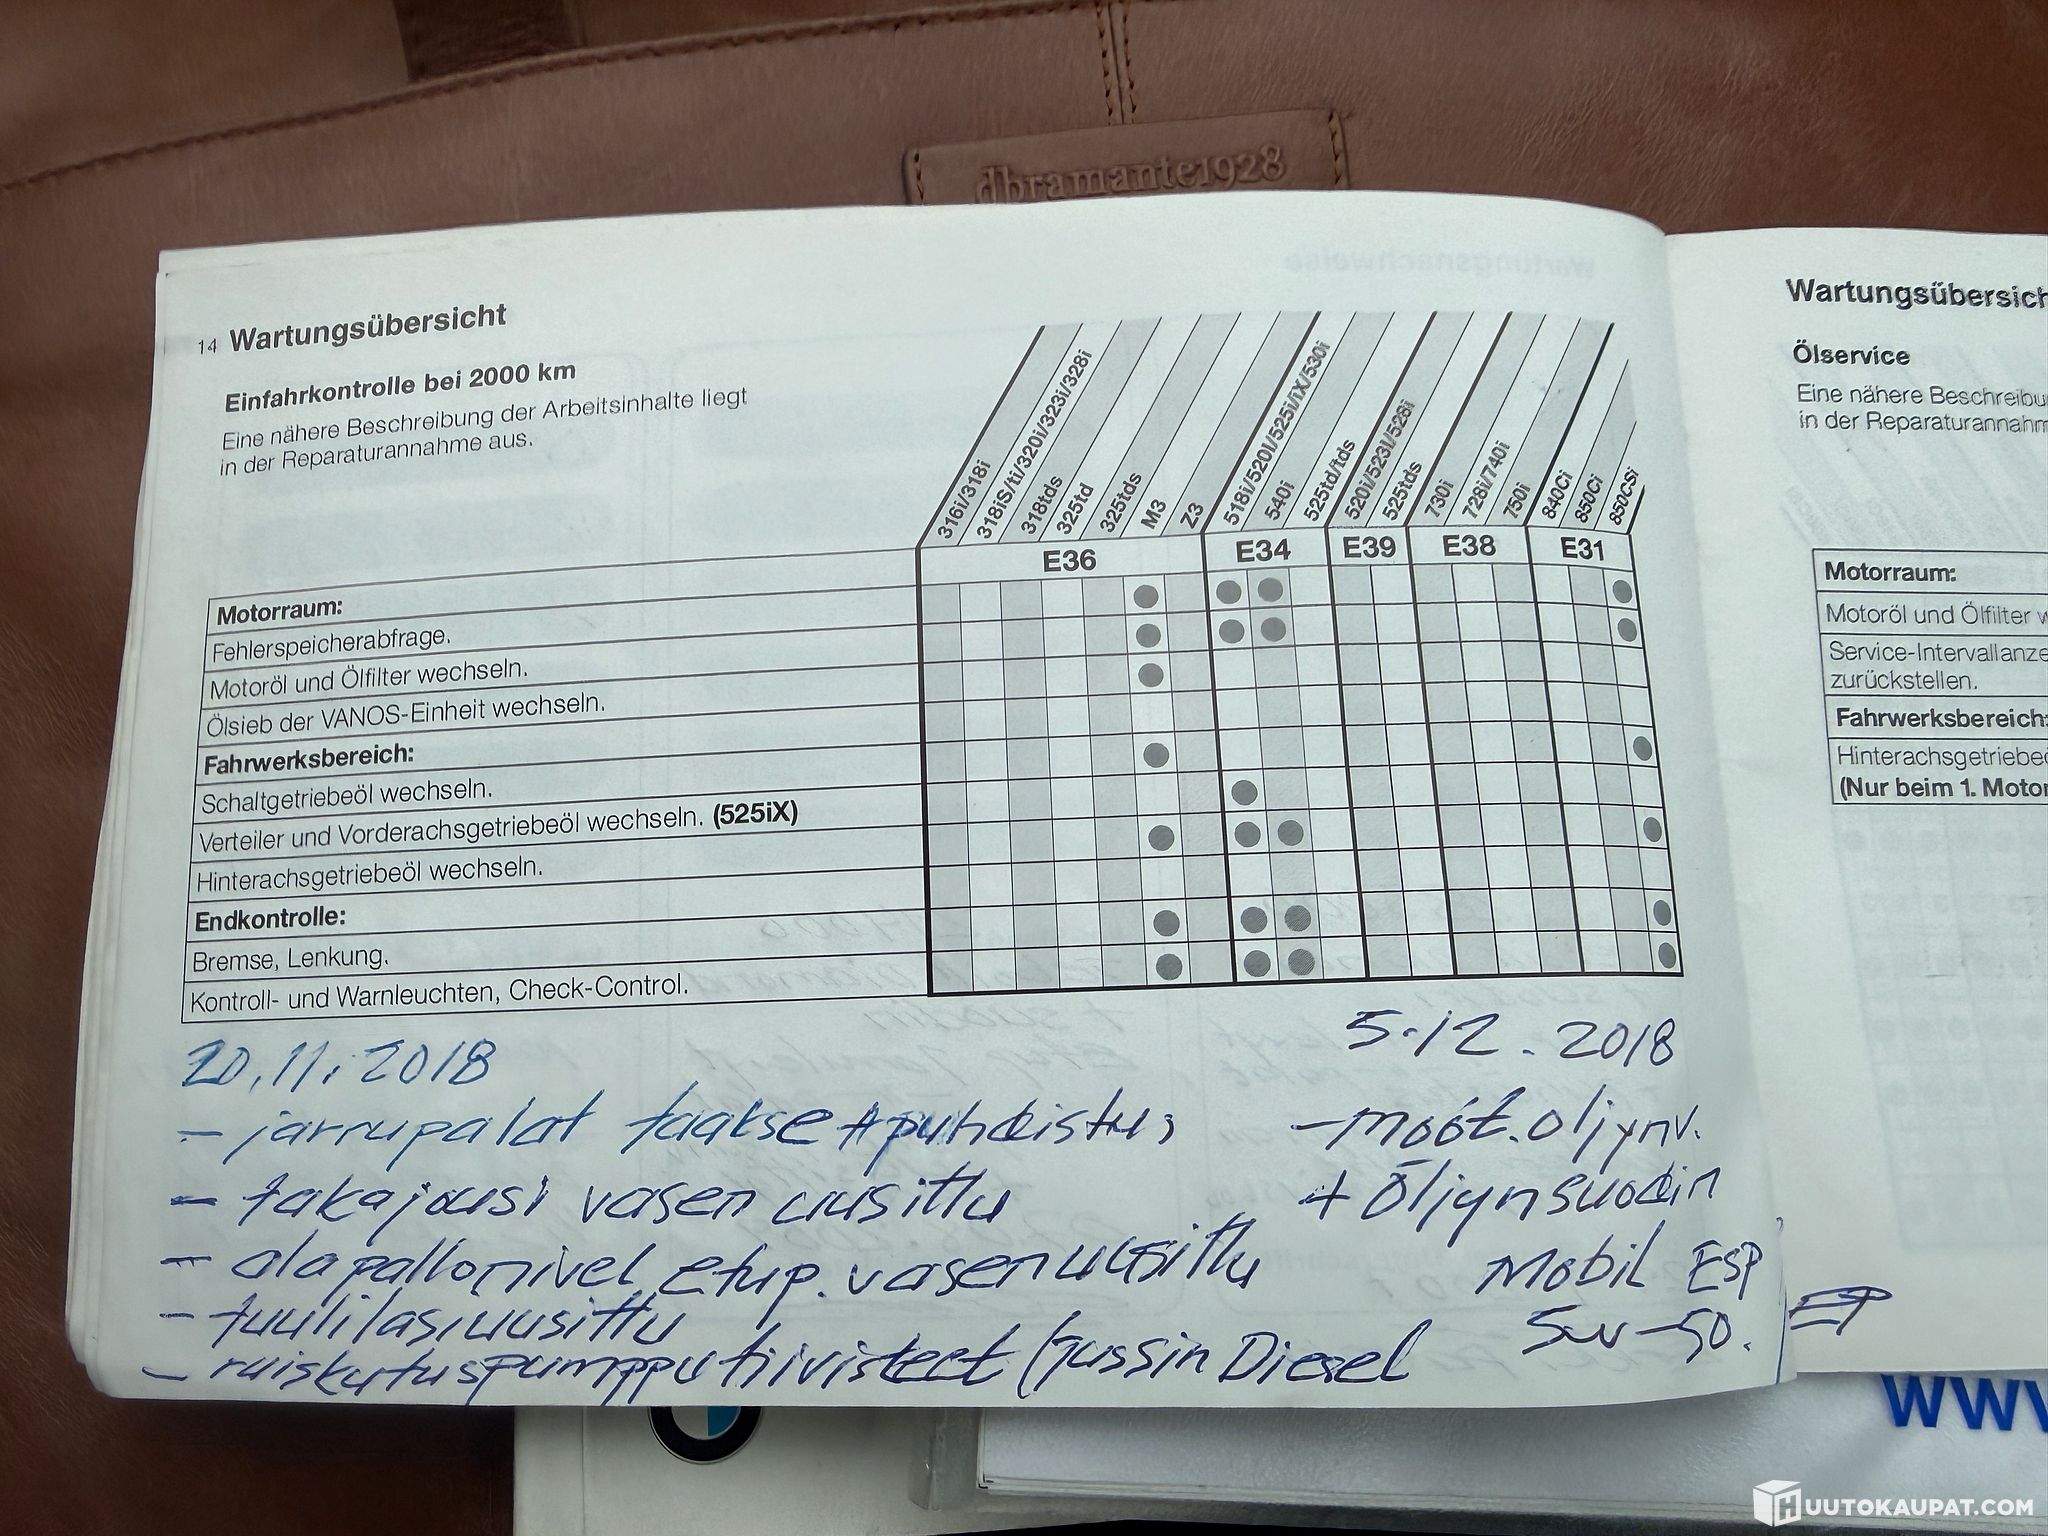 dbramante1928
14 Wartungsübersicht
Einfahrkontrolle bei 2000 km
Eine nähere Beschreibung der Arbeitsinhalte liegt
in der Reparaturannahme aus.
316i/318i
318iS/ti/320i/323i/328i
318tds
325td
325tds
M3
Z3
518i/520i/525i/iX/530i
540i
525td/tds
520i/523i/528i
525tds
730i
728i/740i
750i
840Ci
850Ci
850CSi
E36 E34 E39 E38 E31
Motorraum:
Fehlerspeicherabfrage.
Motoröl und Ölfilter wechseln.
Ölsieb der VANOS-Einheit wechseln.
Fahrwerksbereich:
Schaltgetriebeöl wechseln.
Verteiler und Vorderachsgetriebeöl wechseln. (525iX)
Hinterachsgetriebeöl wechseln.
Endkontrolle:
Bremse, Lenkung.
Kontroll- und Warnleuchten, Check-Control.
20.11.2018
- jarrupalat taakse + puhdistus
- takajousi vasen uusittu
- alapallonivel etup. vasen uusittu
- tuulilasi uusittu
- ruiskutuspumppu tiivisteet (Jussin Diesel
5.12.2018
- moót. öljynv.
+ öljynsuodin
Mobil ESP
5w-50.
Wartungsübersich
Ölservice
Eine nähere Beschreibu
in der Reparaturannahm
Motorraum:
Motoröl und Ölfilter w
Service-Intervallanze
zurückstellen.
Fahrwerksbereich:
Hinterachsgetriebeö
(Nur beim 1. Motor
www
HUUTOKAUPAT.COM